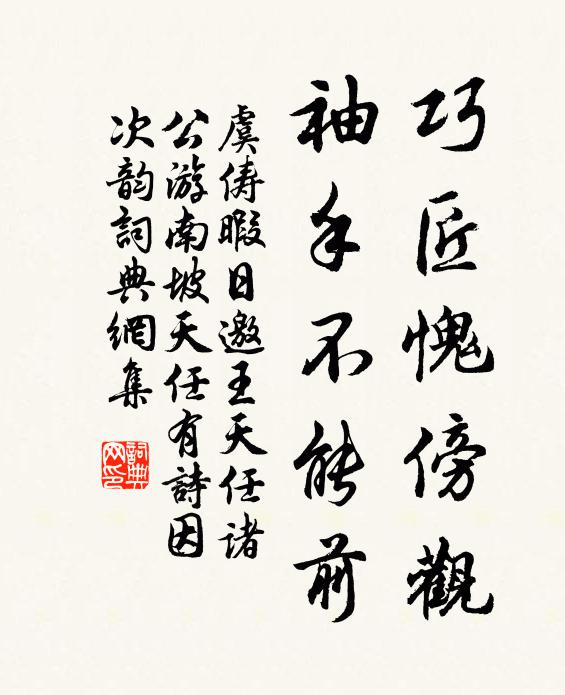 巧匠愧傍觀
袖手不能前
虞俦暇日邀王天任诸
公游南坡天任有詩因
次韵詞典網集
詞典网印